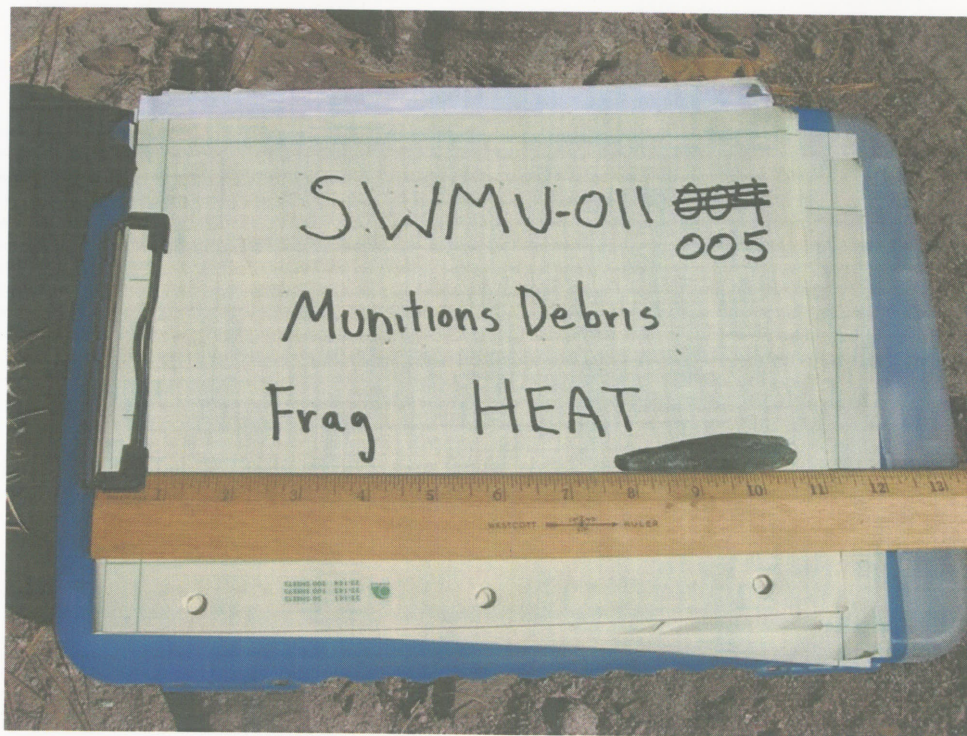 SWMU-011 004
005
Munitions Debris
Frag HEAT
1 2 3 4 5 6 7 8 9 10 11 12 13
WESTCOTT RULER